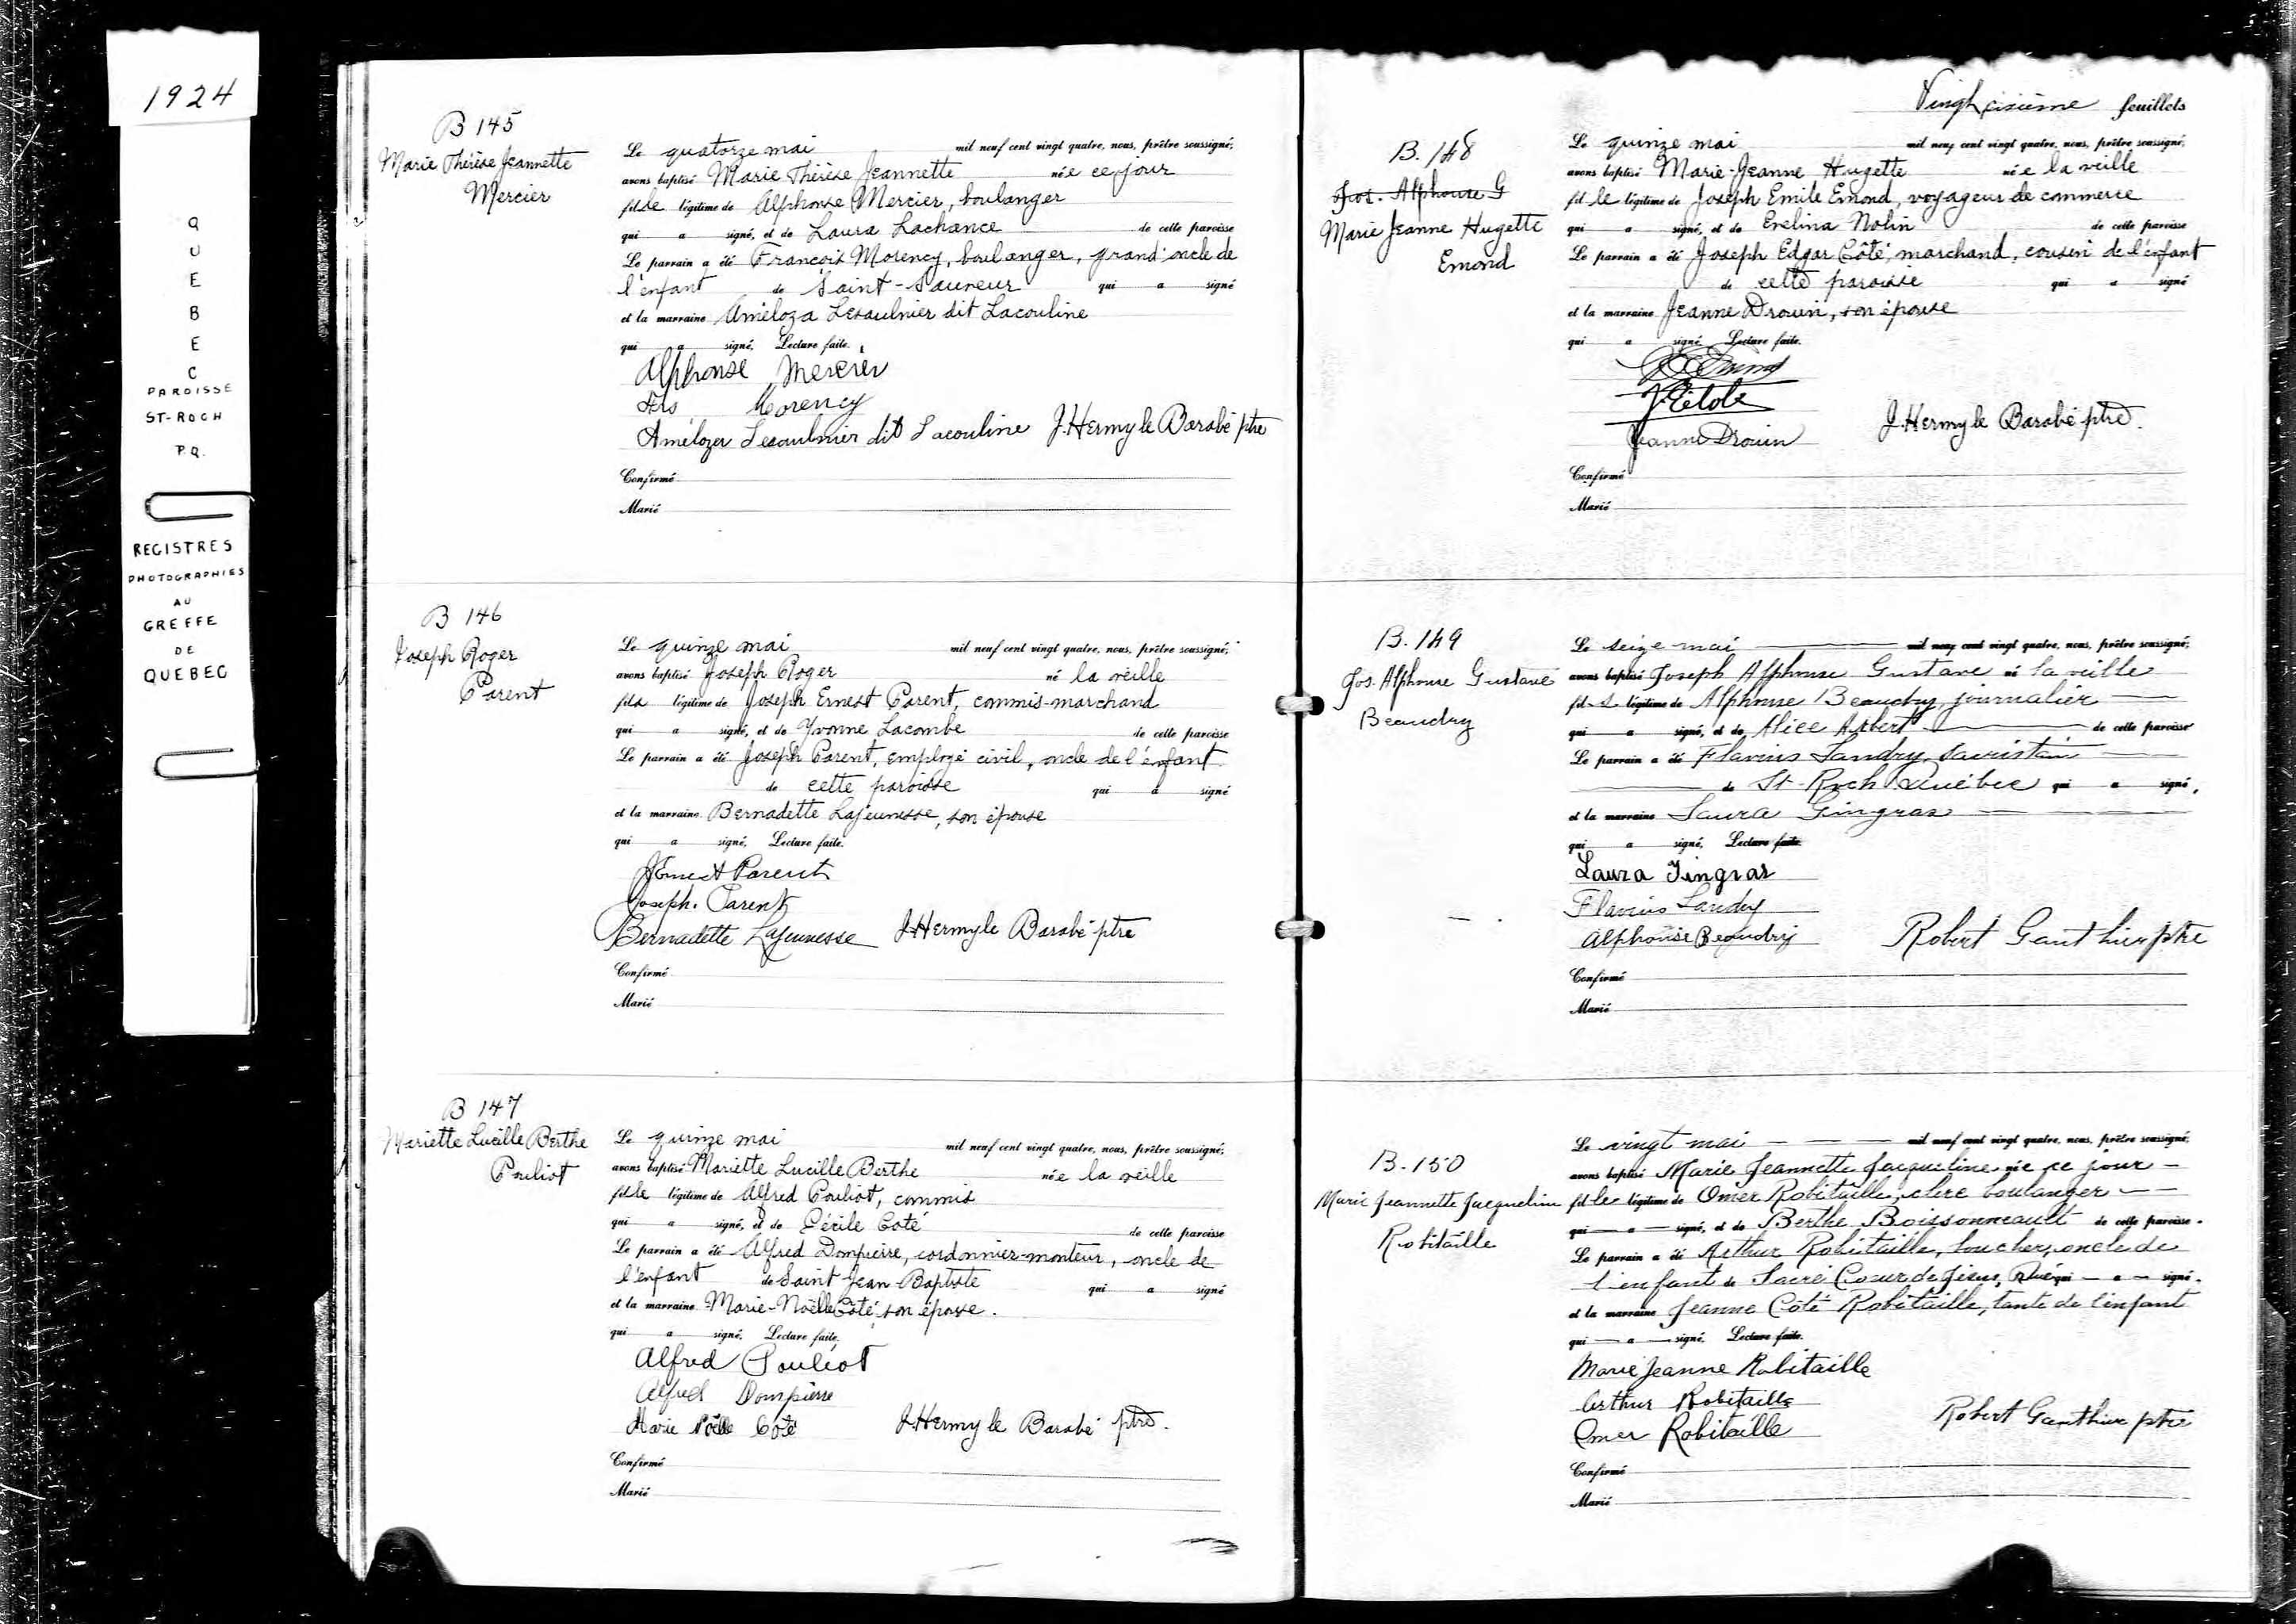 1924
QUEBEC
PAROISSE
ST-ROCH
P.Q.
REGISTRES
PHOTOGRAPHIES
AU
GREFFE
DE
QUEBEC
B 145
Marie Thérèse Jeannette
Mercier
Le quatorze mai mil neuf cent vingt quatre, nous, prêtre soussigné,
avons baptisé Marie Thérèse Jeannette née ce jour
fille légitime de Alphonse Mercier, boulanger
qui a signé, et de Laura Lachance de cette paroisse
Le parrain a été François Morency, boulanger, grand'oncle de
l'enfant de Saint-Sauveur qui a signé
et la marraine Améloza Lesaulnier dit Lacouline
qui a signé. Lecture faite.
Alphonse Mercier
Frs Morency
Amélozer Lesaulnier dit Lacouline J.Hermyle Barabé ptre
Confirmé
Marié
B 146
Joseph Roger
Parent
Le quinze mai mil neuf cent vingt quatre, nous, prêtre soussigné,
avons baptisé Joseph Roger né la veille
fils légitime de Joseph Ernest Parent, commis-marchand
qui a signé, et de Yvonne Lacombe de cette paroisse
Le parrain a été Joseph Parent, employé civil, oncle de l'enfant
de cette paroisse qui a signé
et la marraine Bernadette Lajeunesse, son épouse
qui a signé, Lecture faite.
JErnest Parent
Joseph. Parent
Bernadette Lajeunesse J.Hermyle Barabé ptre
Confirmé
Marié
B 147
Mariette Lucille Berthe
Pouliot
Le quinze mai mil neuf cent vingt quatre, nous, prêtre soussigné,
avons baptisé Mariette Lucille Berthe née la veille
fille légitime de Alfred Pouliot, commis
qui a signé, et de Cécile Coté de cette paroisse
Le parrain a été Alfred Dompierre, cordonnier-monteur, oncle de
l'enfant de Saint Jean Baptiste qui a signé
et la marraine Marie-Noëlle Côté son épouse.
qui a signé. Lecture faite.
Alfred Pouliot
Alfred Dompierre
Marie Noëlle Coté J.Hermyle Barabé ptre.
Confirmé
Marié
feuillets
B. 148
Jos. Alphonse G
Marie Jeanne Hugette
Emond
Le quinze mai mil neuf cent vingt quatre, nous, prêtre soussigné,
avons baptisé Marie-Jeanne Hugette née la veille
fille légitime de Joseph Emile Emond, voyageur de commerce
qui a signé, et de Evelina Nolin de cette paroisse
Le parrain a été Joseph Edgar Côté, marchand, cousin de l'enfant
de cette paroisse qui a signé
et la marraine Jeanne Drouin, son épouse
qui a signé Lecture faite.
Jeanne Drouin J.Hermyle Barabé ptre.
Confirmé
Marié
B. 149
Jos. Alphonse Gustave
Beaudry
Le seize mai mil neuf cent vingt quatre, nous, prêtre soussigné,
avons baptisé Joseph Alphonse Gustave né la veille
fils légitime de Alphonse Beaudry, journalier
qui a signé, et de Alice Aubert de cette paroisse
Le parrain a été Flavius Landry, sacristain
de St-Roch Québec qui a signé,
et la marraine Laura Gingras
qui a signé, Lecture faite.
Laura Gingras
Flavius Landry
Alphonse Beaudry Robert Gauthier ptre
Confirmé
Marié
B. 150
Marie Jeannette Jacqueline
Robitaille
Le vingt mai mil neuf cent vingt quatre, nous, prêtre soussigné,
avons baptisé Marie Jeannette Jacqueline née ce jour
fille légitime de Omer Robitaille, boulanger
qui a signé, et de Berthe Boissonneault de cette paroisse.
Le parrain a été Arthur Robitaille, boucher, oncle de
l'enfant de Sacré Cœur de Jésus, Qué qui a signé.
et la marraine Jeanne Côté Robitaille, tante de l'enfant
qui a signé. Lecture faite.
Marie Jeanne Robitaille
Arthur Robitaille
Omer Robitaille Robert Gauthier ptre
Confirmé
Marié